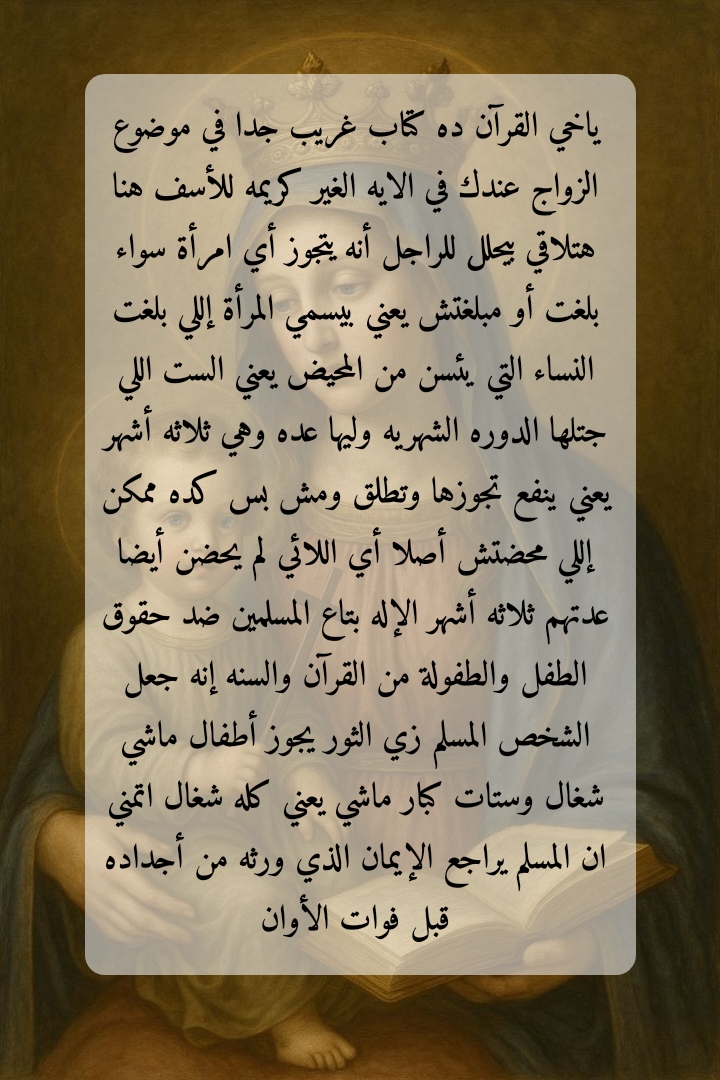 ياخي القرآن ده كتاب غريب جدا في موضوع
الزواج عندك في الايه الغير كريمه للأسف هنا
هتلاقي بيحلل للراجل أنه يتجوز أي امرأة سواء
بلغت أو مبلغتش يعني بيسمي المرأة إللي بلغت
النساء التي يئسن من المحيض يعني الست اللي
جتلها الدوره الشهريه وليها عده وهي ثلاثه أشهر
يعني ينفع تجوزها وتطلق ومش بس كده ممكن
إللي محضتش أصلا أي اللائي لم يحضن أيضا
عدتهم ثلاثه أشهر الإله بتاع المسلمين ضد حقوق
الطفل والطفولة من القرآن والسنه إنه جعل
الشخص المسلم زي الثور يجوز أطفال ماشي
شغال وستات كبار ماشي يعني كله شغال اتمني
ان المسلم يراجع الإيمان الذي ورثه من أجداده
قبل فوات الأوان